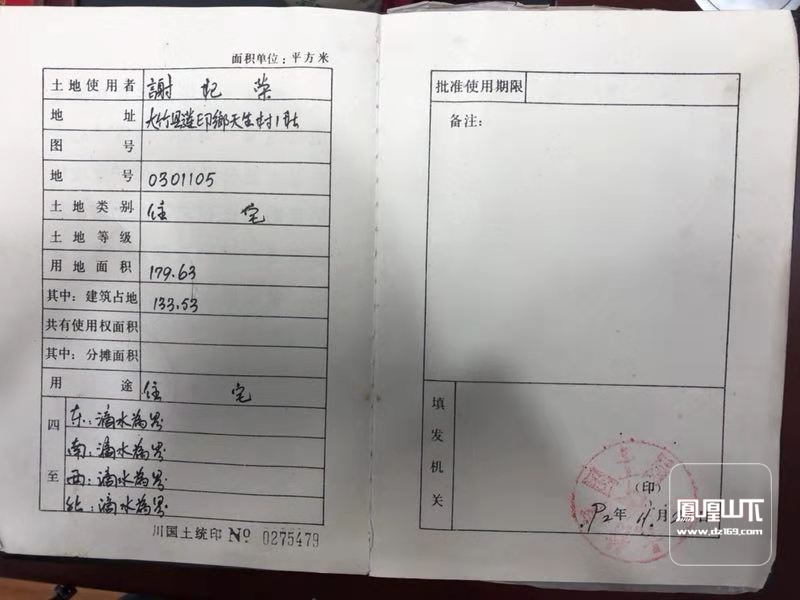 面积单位：平方米
土地使用者 謝纪荣
地址 大竹县莲印鄉天生村1社
图号
地号 0301105
土地类别 住宅
土地等级
用地面积 179.63
其中：建筑占地 133.53
共有使用权面积
其中：分摊面积
用途 住宅
四至
东：滴水為界
南：滴水為界
西：滴水為界
北：滴水為界
川国土统印 № 0275479
批准使用期限
备注：
填发机关
（印）
92年11月 日
凤凰山下
www.dz169.com